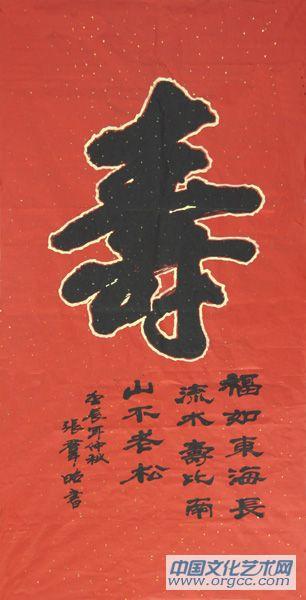 壽
福如東海長
流水壽比南
山不老松
壬辰年仲秋
張葦昭書
中国文化艺术网
www.orgcc.com